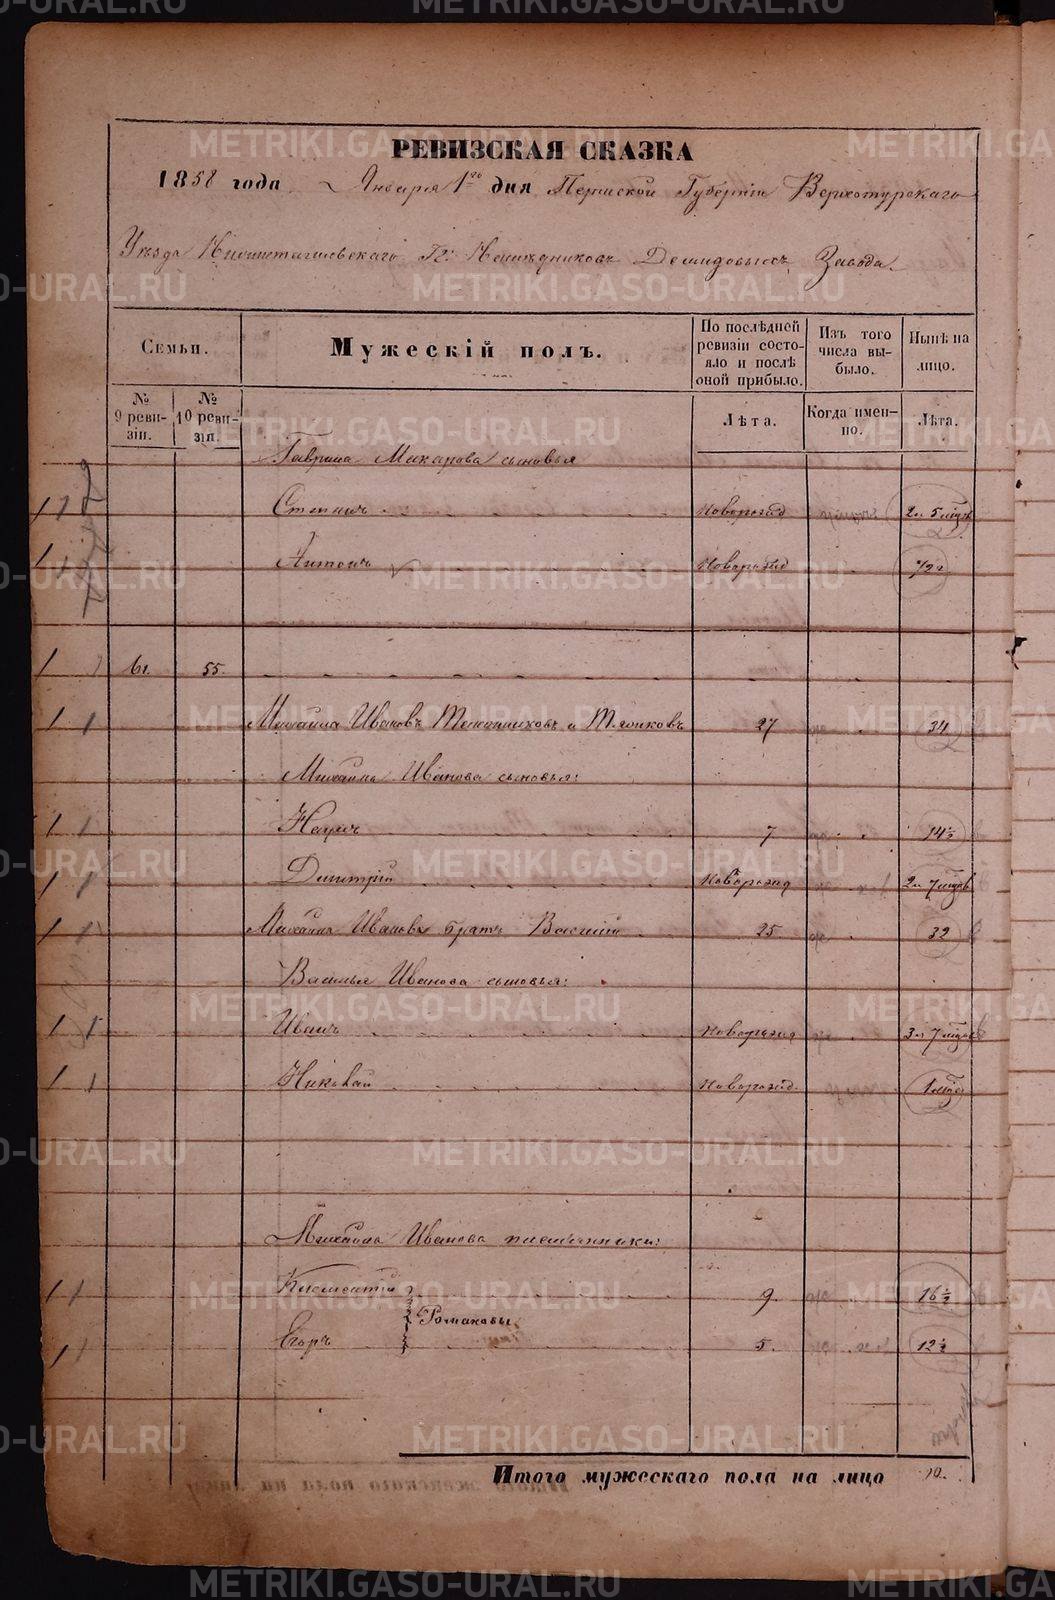 РЕВИЗСКАЯ СКАЗКА
1858 года Января 1го дня Пермской Губерніи Верхотурскаго
Уѣзда Нижнетагильскаго Гг. Наслѣдниковъ Демидовыхъ Завода.
Семьи.
Мужескій полъ.
По послѣдней ревизіи состояло и послѣ оной прибыло.
Изъ того числа выбыло.
Нынѣ на лицо.
№ 9 ревизіи.
№ 10 ревизіи.
Лѣта.
Когда именно.
Лѣта.
Гаврила Макарова сыновья
Степанъ Новорожд 2 5
Антонъ Новорожд 1/2
61. 55.
Михаила Ивановъ и 27 34
Михаила Иванова сыновья:
Наумъ 7 14½
Дмитрій Новорожд 2 7
Михаила Иванова братъ Василій 25 32
Василья Иванова сыновья:
Иванъ Новорожд 3 7
Николай Новорожд. 1
Михаила Иванова племянники:
Климентій 9. 16½
Романовы
Егоръ 5. 12½
Итого мужескаго пола на лицо 10.
METRIKI.GASO-URAL.RU